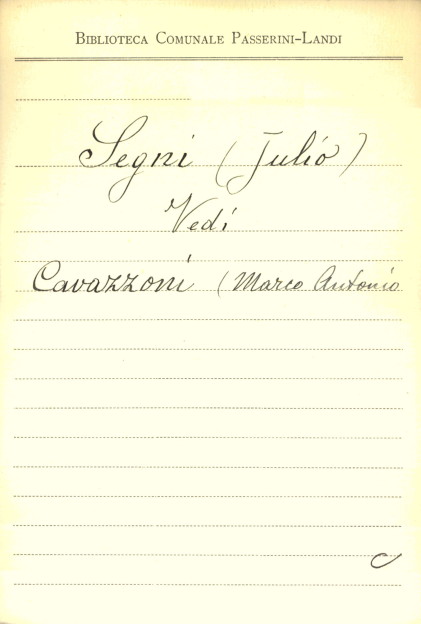 Biblioteca Comunale Passerini-Landi
Segni (Julió)
Vedi
Cavazzoni (Marco Antonio